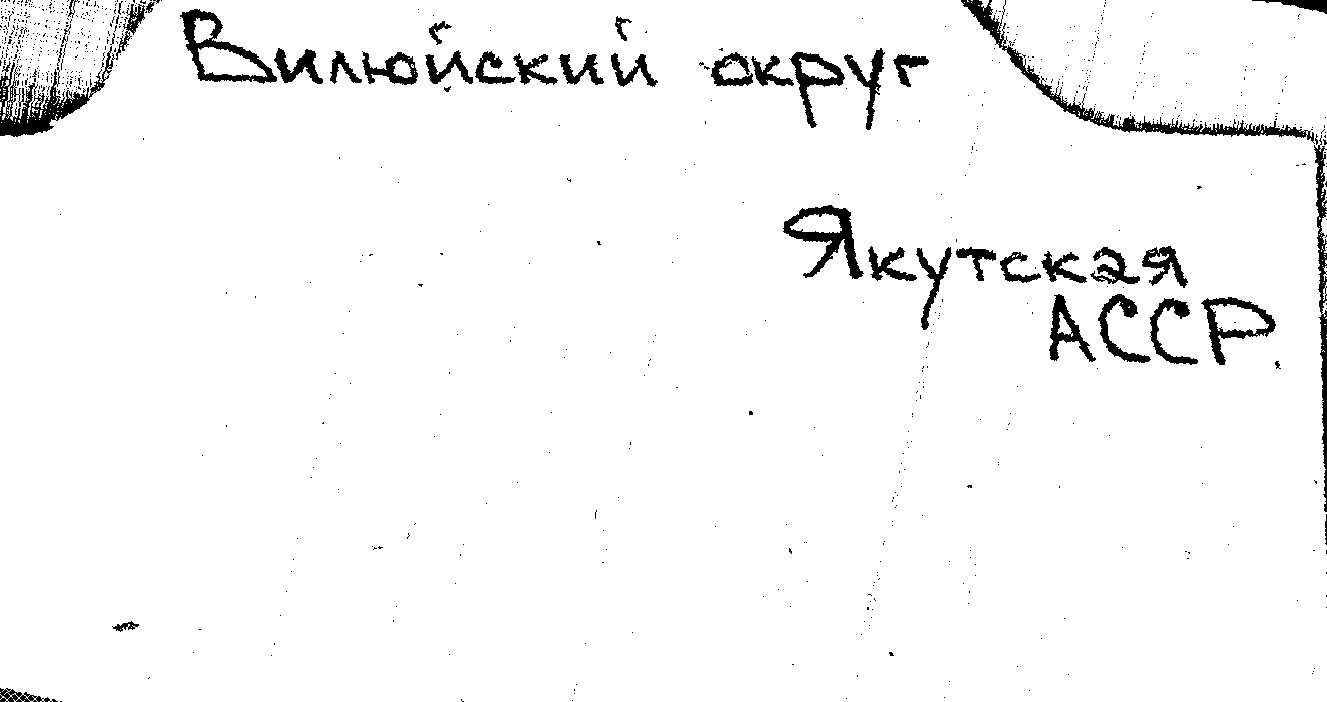 Вилюйский округ
Якутская
АССР.